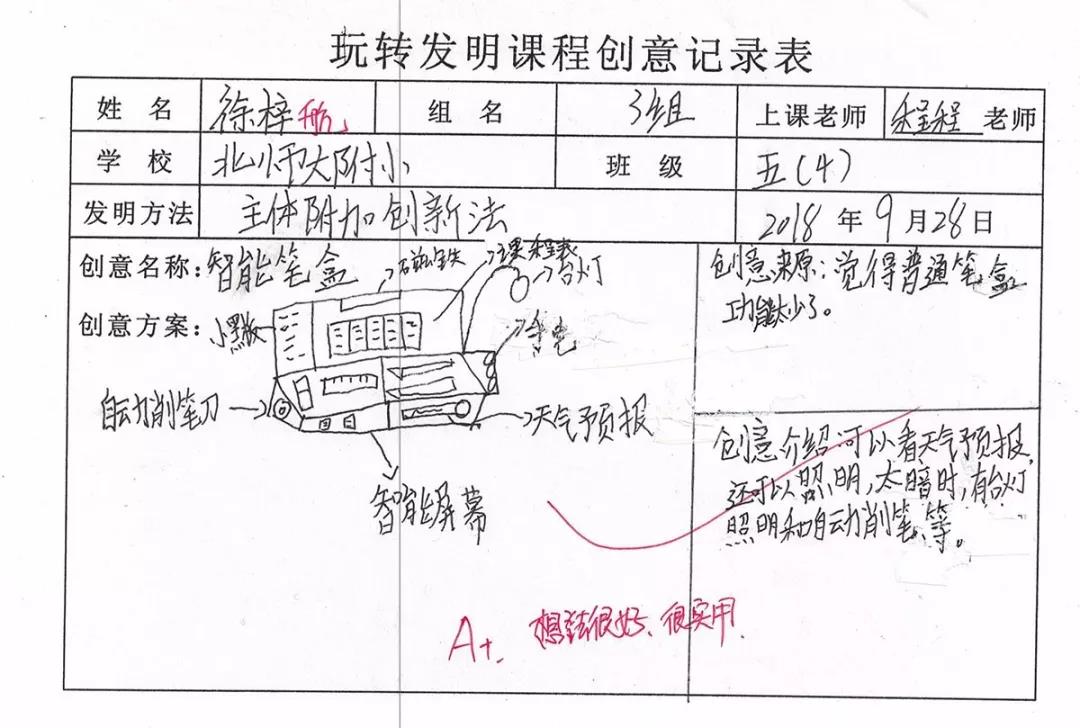 玩转发明课程创意记录表
姓 名 徐梓航 组 名 3组 上课老师 程程 老师
学 校 北师大附小 班 级 五(4)
发明方法 主体附加创新法 2018 年 9 月 28 日
创意名称:智能笔盒
创意方案:
磁铁
课程表
台灯
小黑板
手电
自动削笔刀
天气预报
智能屏幕
创意来源:觉得普通笔盒
功能太少了。
创意介绍可以看天气预报,
还可以照明,太暗时,有台灯
照明和自动削笔等。
A+ 想法很好、很实用